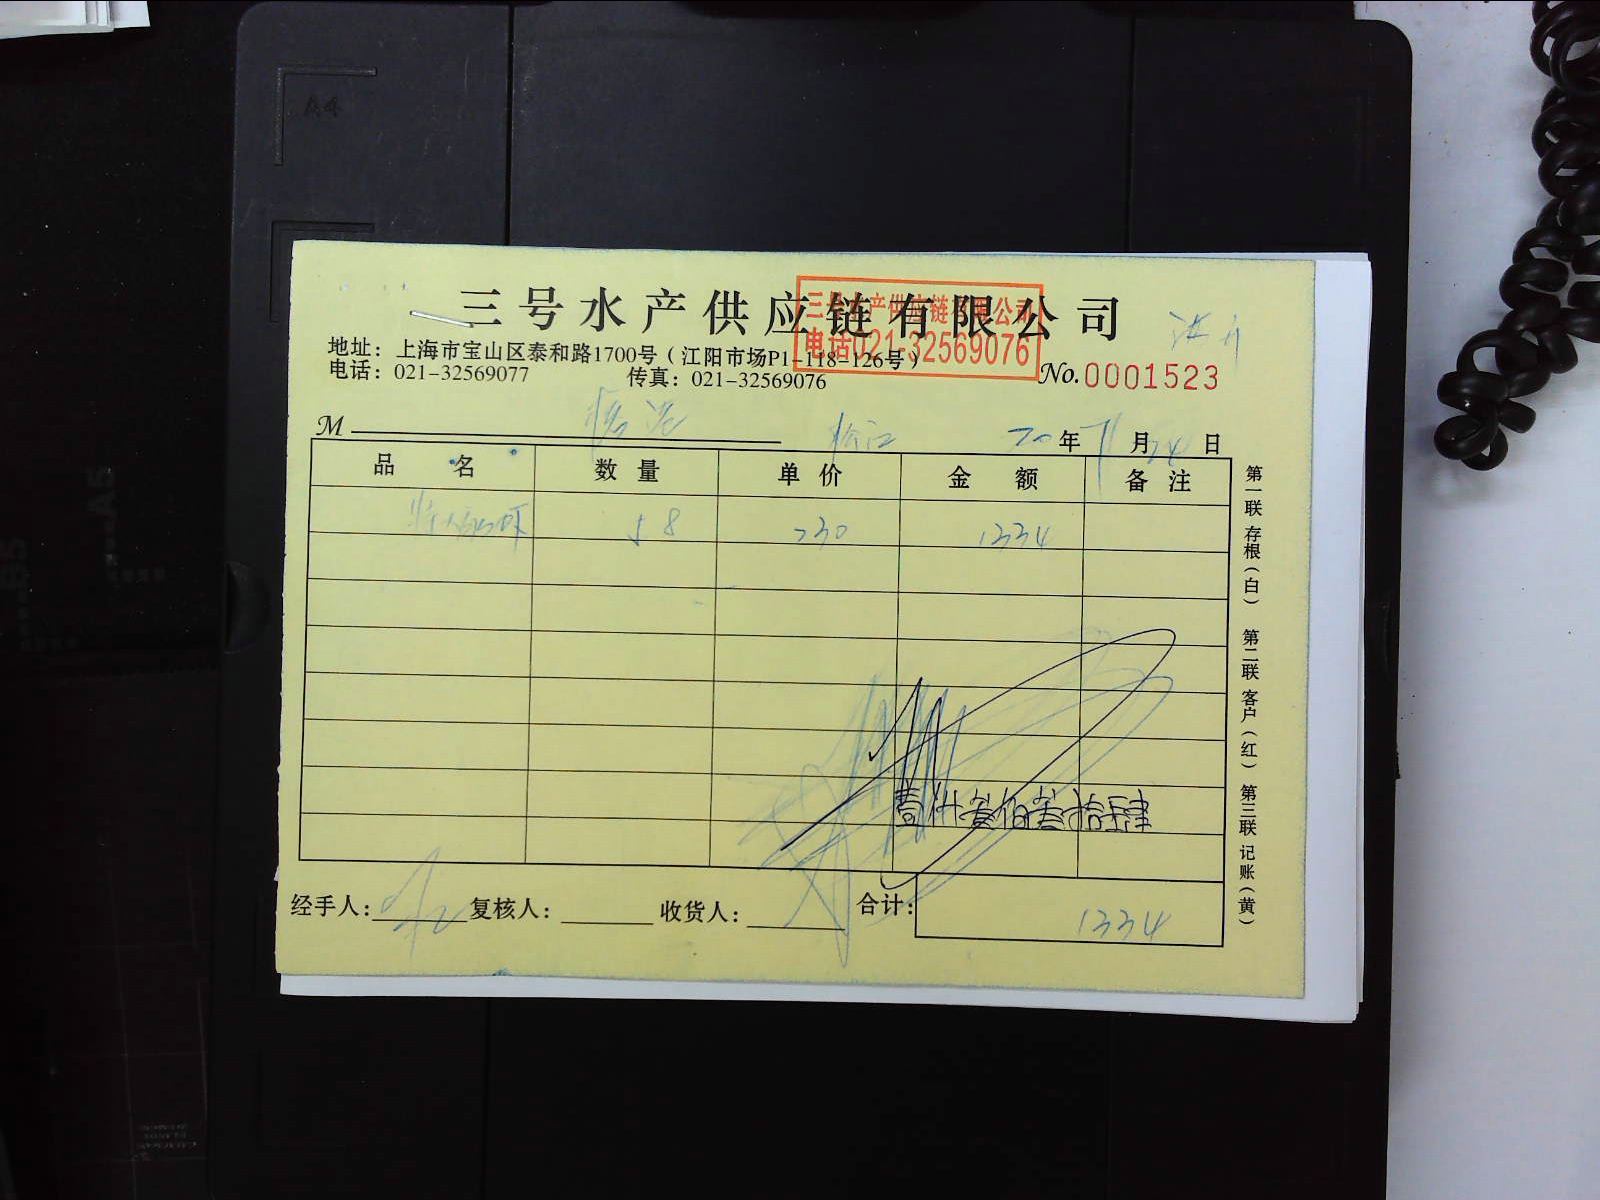 三号水产供应链有限公司
三号水产供应链有限公司
电话021-32569076
地址：上海市宝山区泰和路1700号（江阳市场P1-118-126号）
电话：021-32569077 传真：021-32569076
No.0001523
M
20年 月 24 日
品 名 数 量 单 价 金 额 备 注
58 230 1334
壹仟叁佰叁拾肆
经手人： 复核人： 收货人： 合计： 1334
第一联 存根（白） 第二联 客户（红） 第三联 记账（黄）
A4
A5
B5